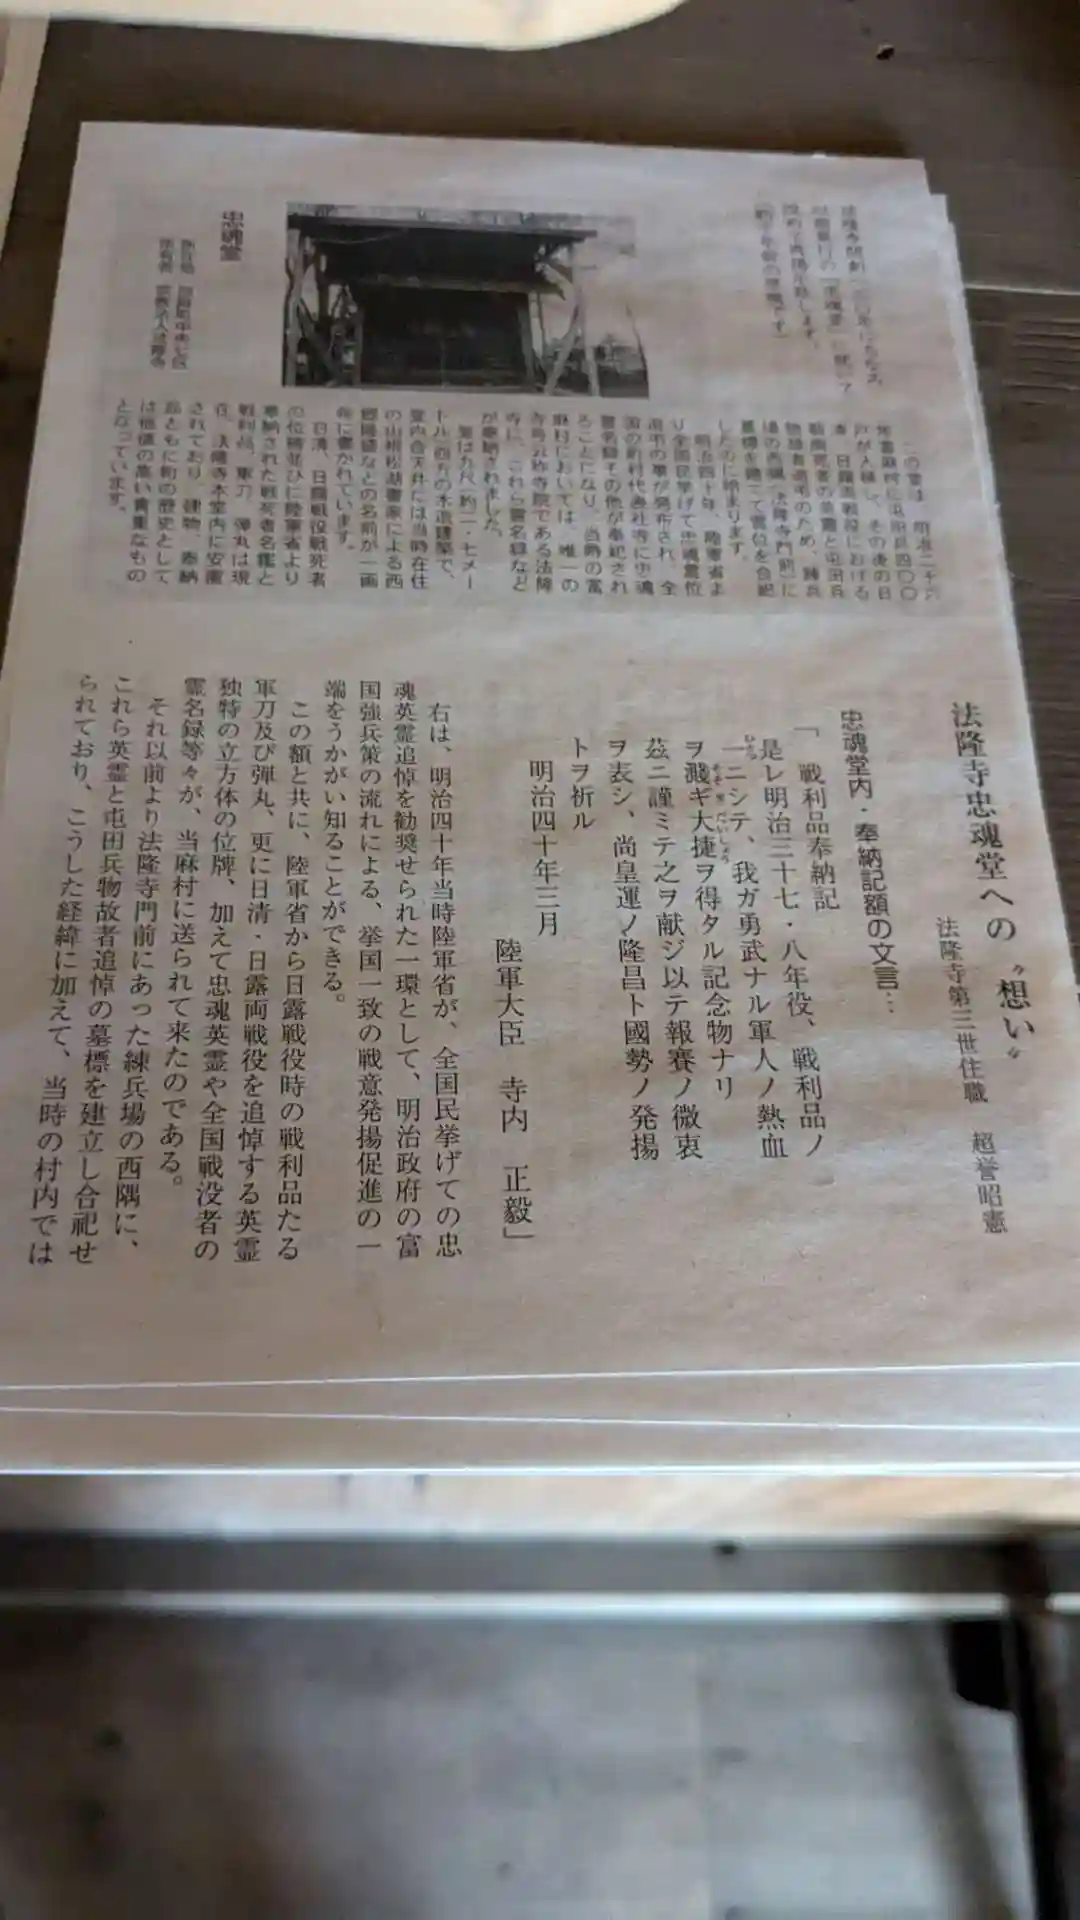 法隆寺忠魂堂への〝想い〟
法隆寺第三世住職　超誉昭憲
忠魂堂内・奉納記額の文言…
「　戦利品奉納記
是レ明治三十七・八年役、戦利品ノ
一ニシテ、我ガ勇武ナル軍人ノ熱血
ひとつ
ヲ濺ギ大捷ヲ得タル記念物ナリ
そそぎ　だいしょう
茲ニ謹ミテ之ヲ献ジ以テ報賽ノ微衷
ヲ表シ、尚皇運ノ隆昌ト國勢ノ発揚
トヲ祈ル
明治四十年三月
陸軍大臣　寺内　正毅」
右は、明治四十年当時陸軍省が、全国民挙げての忠
魂英霊追悼を勧奨せられた一環として、明治政府の富
国強兵策の流れによる、挙国一致の戦意発揚促進の一
端をうかがい知ることができる。
この額と共に、陸軍省から日露戦役時の戦利品たる
軍刀及び弾丸、更に日清・日露両戦役を追悼する英霊
独特の立方体の位牌、加えて忠魂英霊や全国戦没者の
霊名録等々が、当麻村に送られて来たのである。
それ以前より法隆寺門前にあった練兵場の西隅に、
これら英霊と屯田兵物故者追悼の墓標を建立し合祀せ
られており、こうした経緯に加えて、当時の村内では
この堂は、明治二十六
年当麻村に屯田兵四〇〇
戸が入植し、その後の日
清、日露両戦役における
戦病死者の英霊と屯田兵
物故者追弔のため、練兵
場の西隅（法隆寺門前）に
墓標を建て霊位を合祀
したのに始まります。
明治四十年、陸軍省よ
り全国民挙げて忠魂霊位
追弔の華が発布され、全
国の町村代表社寺に忠魂
霊名録その他が奉祀され
ることになり、当時の当
麻村においては、唯一の
寺号公称寺院である法隆
寺に、これら霊名録など
が奉納されました。
堂は九尺（約二・七メー
トル）四方の木造建築で、
堂内合天井には当時在住
の山根松湖書家による西
郷隆盛などの名前が一画
毎に書かれています。
日清、日露戦役戦死者
の位牌並びに陸軍省より
奉納された戦死者名鑑と
戦利品、軍刀、弾丸は現
在、法隆寺本堂内に安置
されており、建物、奉納
品ともに町の歴史として
は価値の高い貴重なもの
となっています。
忠魂堂